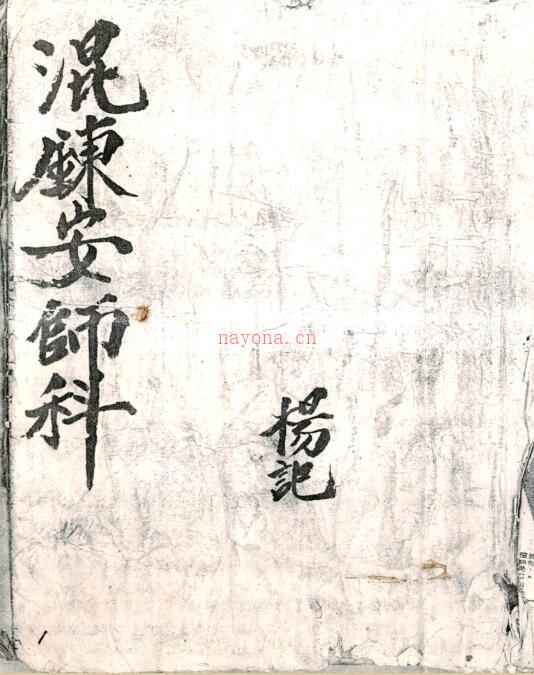 混鍊安師科
楊記
nayona.cn